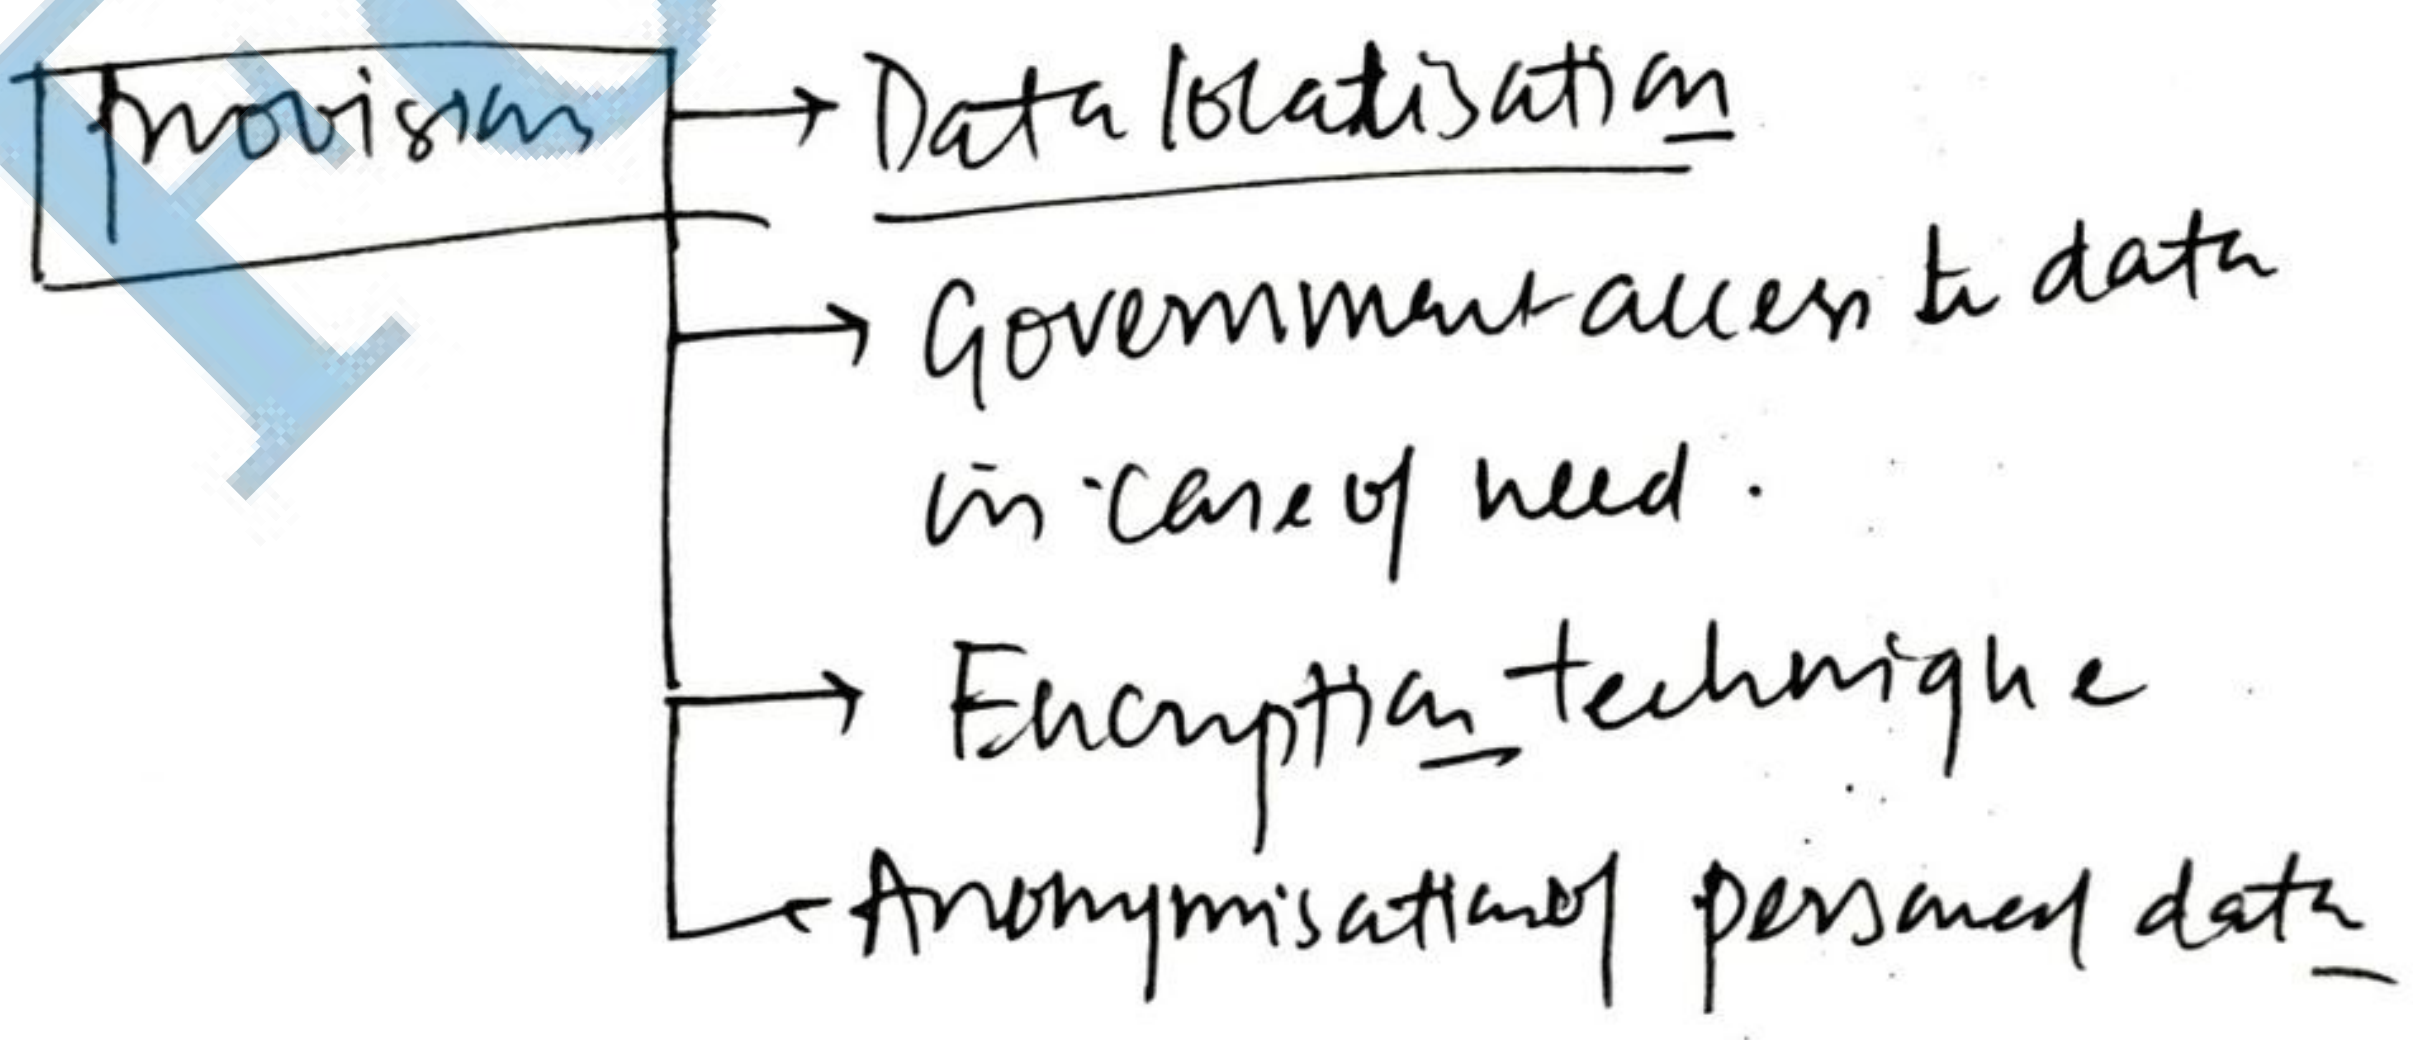 Provisions
Data localisation
Government access to data
in case of need.
Encryption technique
Anonymisation of personal data